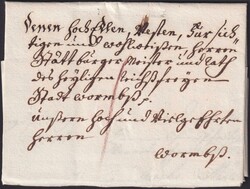 Denen Hochedlen, Vesten, Fürsich
tigen und wohlweißen Herren
Stättbürger Meister und Rath
des Heyligen Reichs freyen
Stadt wormbß.
Unßeren Hoch und Vielgeehrten
Herren
wormbß.